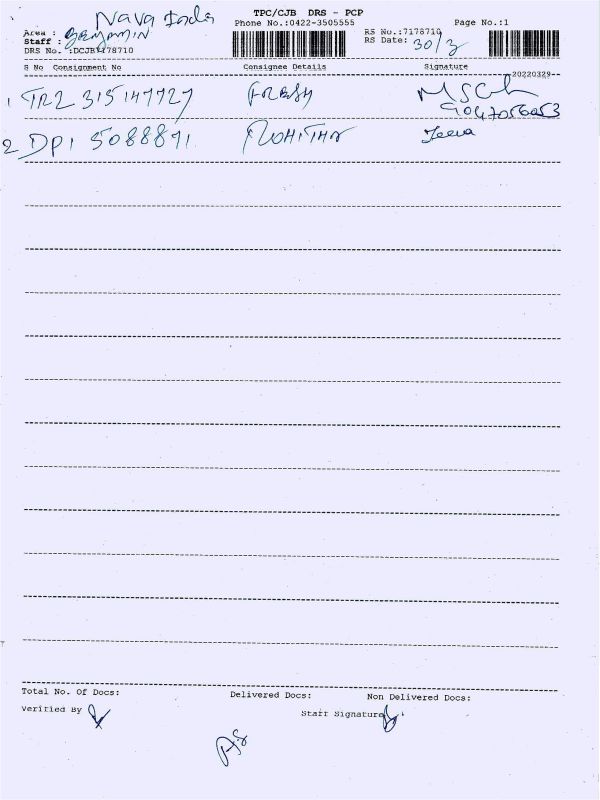 Nava India
TPC/CJB DRS - PCP
Phone No.:0422-3505555 Page No.:1
Area :
Staff : Benjamin RS No.:7178710
DRS No. :DCJB1478710 RS Date: 30/3
S No Consignment No Consignee Details Signature
--20220329--
1 TRZ 315147727 FRESH
9047056053
2 DP1 5088871 ROHITHA Jeeva
Total No. Of Docs: Delivered Docs: Non Delivered Docs:
Verified By Staff Signature